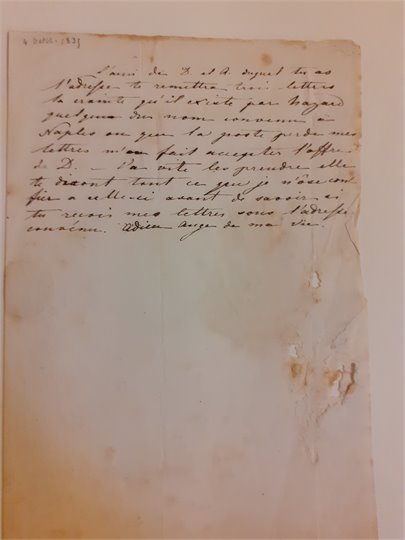 4 1835
L'ami de D. et A. duquel tu as
l'adresse te remettra trois lettres
la crainte qu'il existe par hazard
quelqun dun nom convenu à
Naples ou que la poste perde mes
lettres m'a fait accepter l'offre
de D. — Va vite les prendre elle
te diront tout ce que je n'ose con
fier a celle ci avant de savoir si
tu reçois mes lettres sous l'adresse
convenu. Adieu Ange de ma vie.